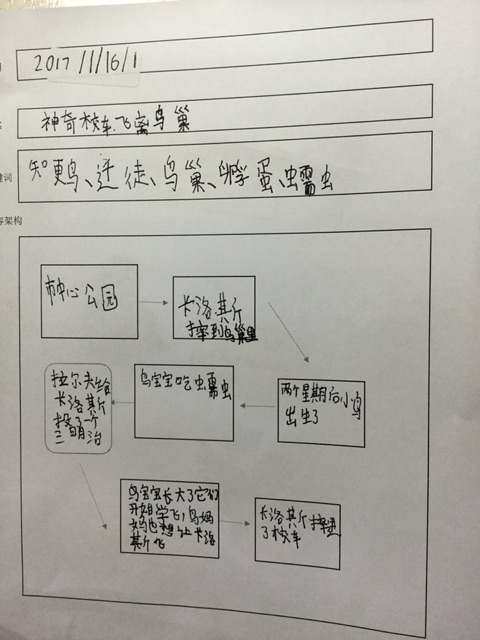 2017/11/16/1
神奇校车.飞离鸟巢
键词
知更鸟、迁徒、鸟巢、孵蛋、蠕虫
容架构
市中心公园
卡洛其斤
摔到鸟巢里
两个星期后小鸟
出生了
鸟宝宝吃蠕虫
拉尔夫给
卡洛其斤
投了一个
三明治
鸟宝宝长大了它们
开始学飞,鸟妈
妈也想让卡洛
其斤飞
卡洛其斤摔进
了校车